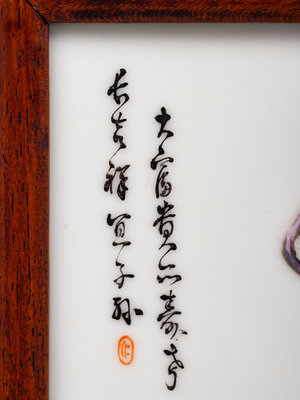 大富貴亦壽考
長吉祥宜子孫